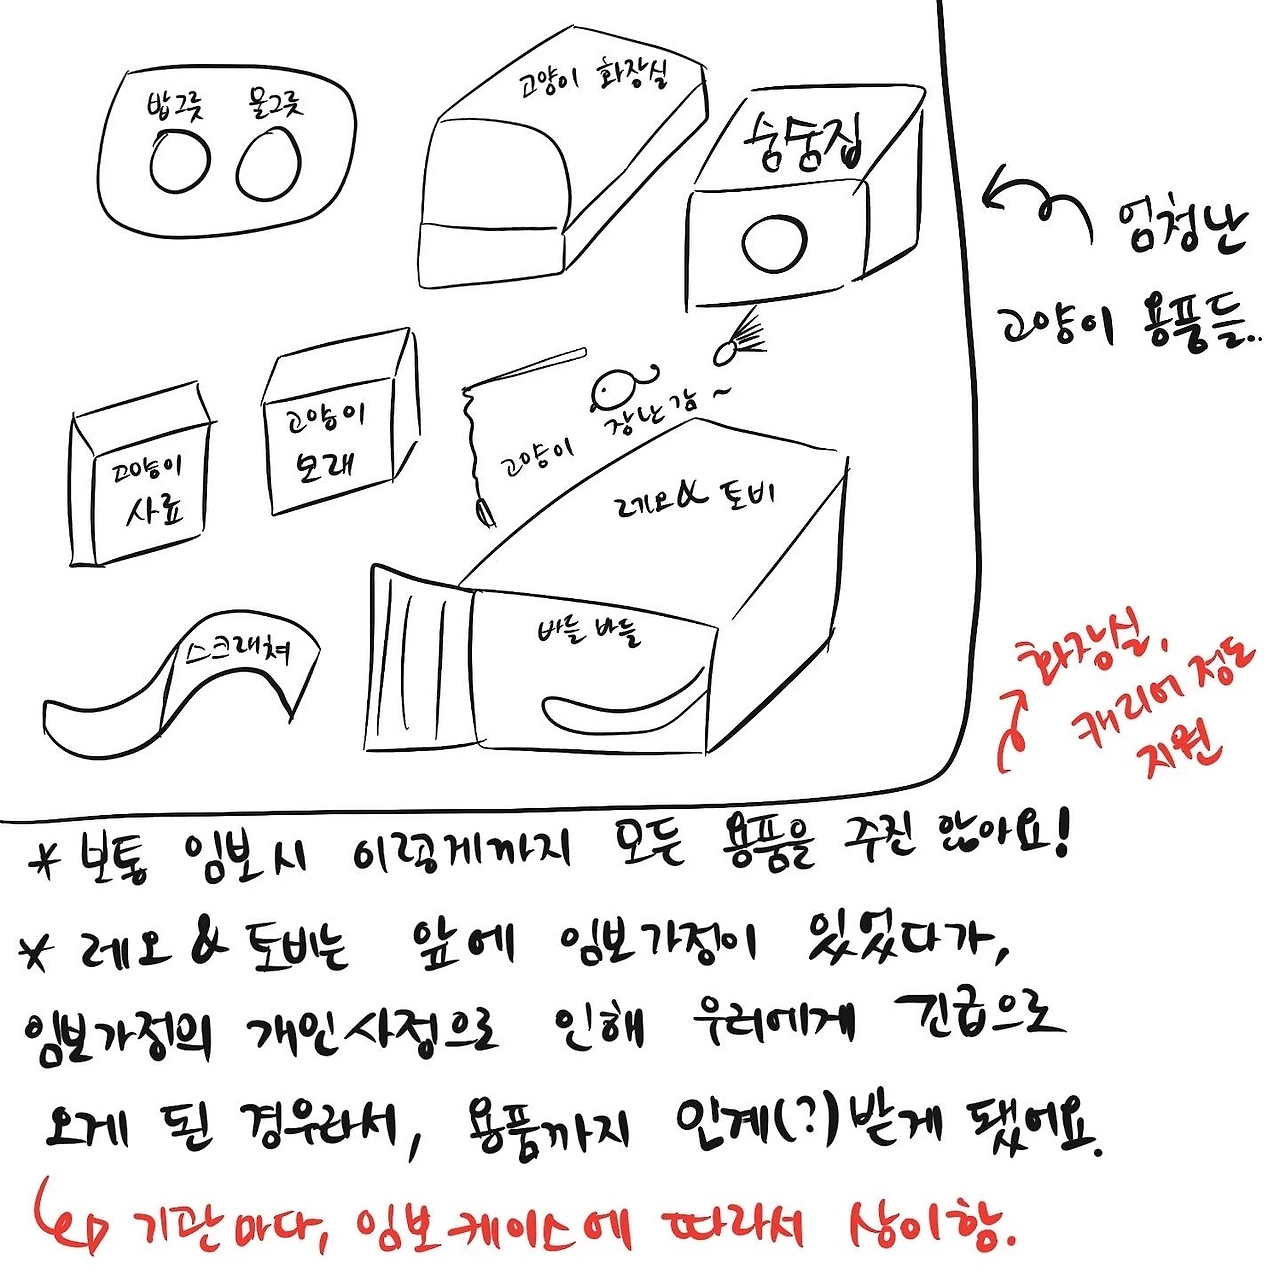 밥그릇 물그릇
고양이 화장실
숭숭집
엄청난
고양이 용품들..
고양이
모래
고양이
사료
고양이 장난감~
레오 & 토비
바들 바들
스크래쳐
화장실,
캐리어 정도
지원
* 보통 임보시 이렇게까지 모든 용품을 주진 않아요!
* 레오 & 토비는 앞에 임보가정이 있었다가,
임보가정의 개인사정으로 인해 우리에게 긴급으로
오게 된 경우라서, 용품까지 인계(?)받게 됐어요.
기관마다, 임보케이스에 따라서 상이함.